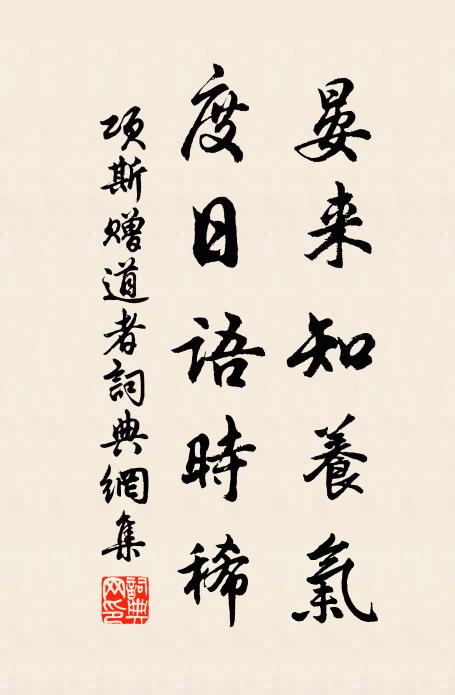 晏来知養氣
度日語時稀
项斯赠道者詞典網集
詞典网印